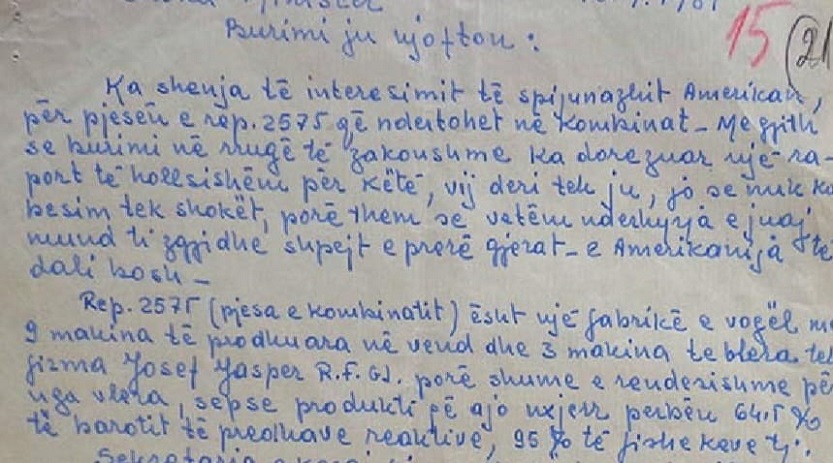 Burimi ju njofton :
15 21
Ka shenja të interesimit të spijunazhit Amerikan,
për pjesën e rep. 2575 që ndertohet në Kombinat – Megjith
se burimi në rrugë të zakonshme ka dorezuar një ra-
port të hollsishëm për këtë, vij deri tek ju, jo se nuk ka
besim tek shokët, porë them se vetëm nderhyrja e juaj
mund ti zgjidhë shpejt e prerë gjerat – e Amerikanija të
dali bosh –
Rep. 2575 (pjesa e kombinatit) ësht një fabrikë e vogël me
9 makina të prodhuara në vend dhe 3 makina te blera tek
firma Josef Jasper R.F.GJ. porë shume e rendesishme për
nga vlera, sepse produkti që ajo nxjerr perbën 64.5 %
të barotit të predhave reaktive, 95 % të fishekeve tj.